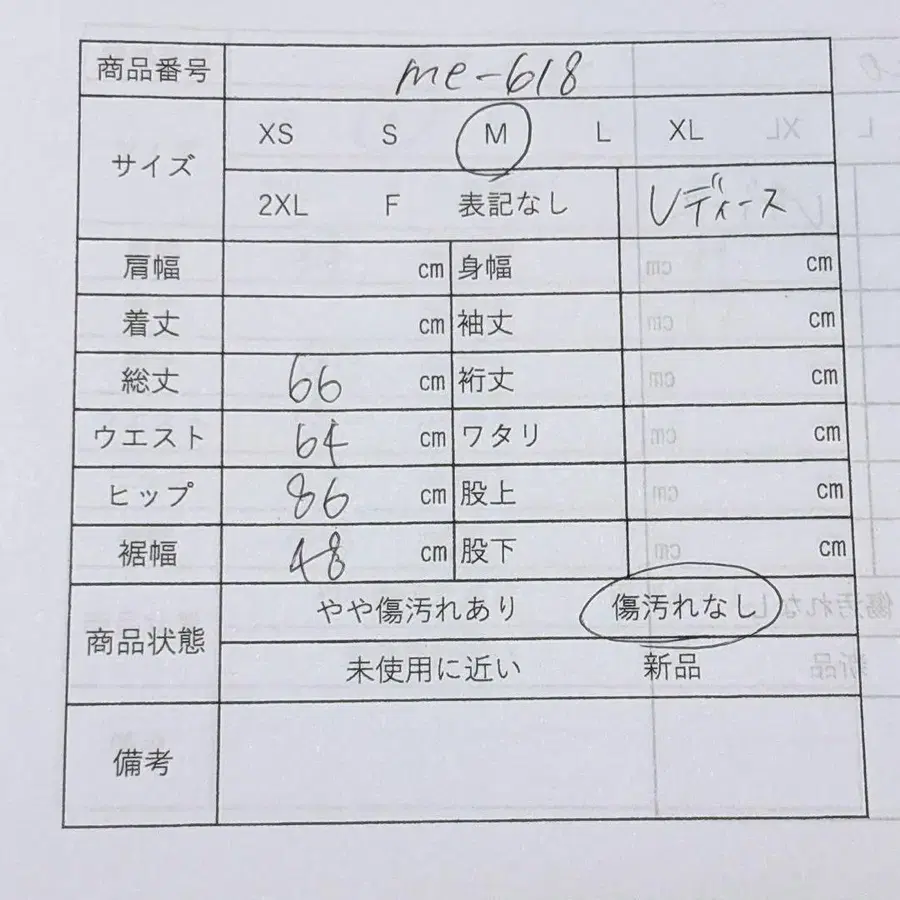 商品番号 me-618
サイズ XS S M L XL
2XL F 表記なし レディース
肩幅 cm 身幅 cm
着丈 cm 袖丈 cm
総丈 66 cm 裄丈 cm
ウエスト 64 cm ワタリ cm
ヒップ 86 cm 股上 cm
裾幅 48 cm 股下 cm
商品状態 やや傷汚れあり 傷汚れなし
未使用に近い 新品
備考